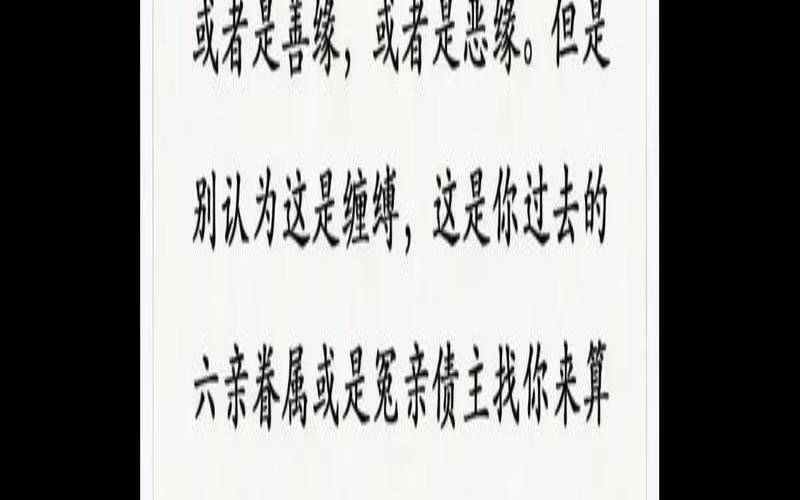 或者是善缘，或者是恶缘。但是
别认为这是缠缚，这是你过去的
六亲眷属或是冤亲债主找你来算